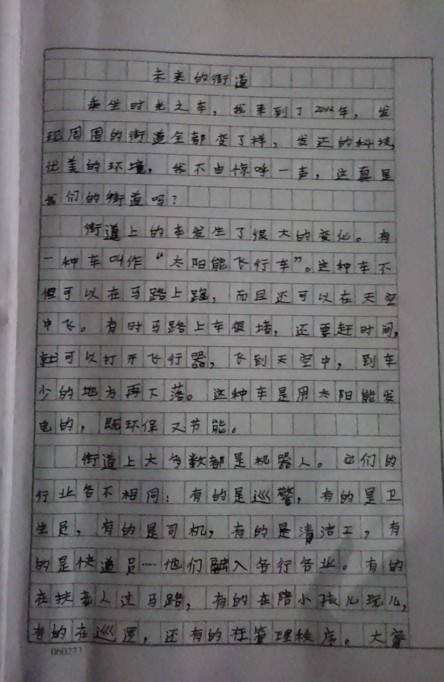 未来的街道
乘坐时光之车，我来到了2044年，发
现周围的街道全都变了样，发达的科技，
优美的环境，我不由惊呼一声，这真是
我们的街道吗？
街道上的车发生了很大的变化。有
一种车叫作“太阳能飞行车”。这种车不
但可以在马路上跑，而且还可以在天空
中飞。有时马路上车很堵，还要赶时间，
就可以打开飞行器，飞到天空中，到车
少的地方再下落。这种车是用太阳能发
电的，既环保又节能。
街道上大多数都是机器人。它们的
行业各不相同：有的是巡警，有的是卫
生员，有的是司机，有的是清洁工，有
的是快递员…他们融入各行各业。有的
在扶老人过马路，有的在陪小孩儿玩儿，
有的在巡逻，还有的在管理秩序。大
060233